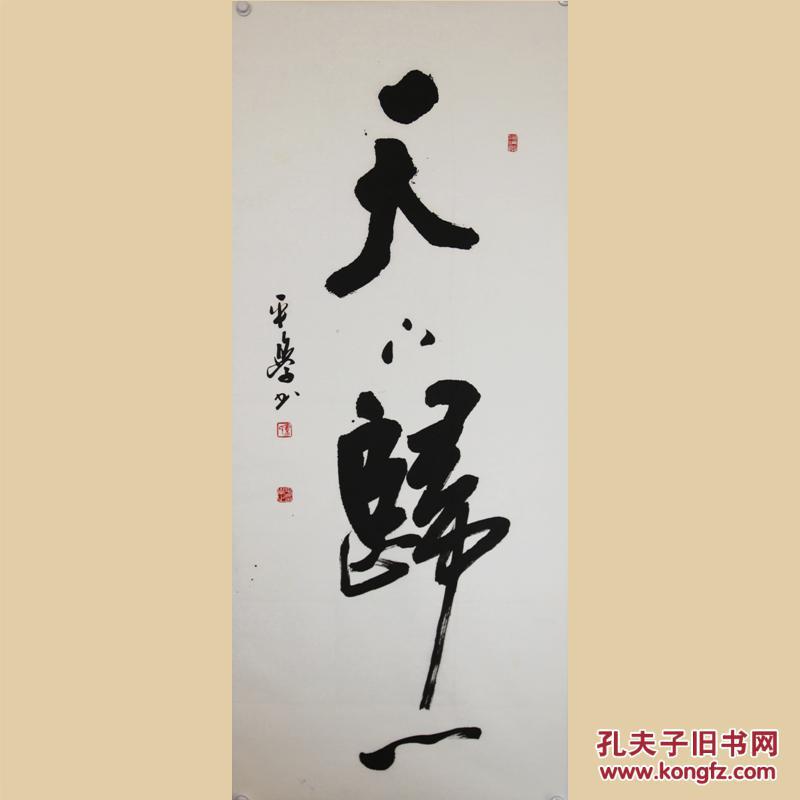 天下歸一
平學书
孔夫子旧书网
www.kongfz.com